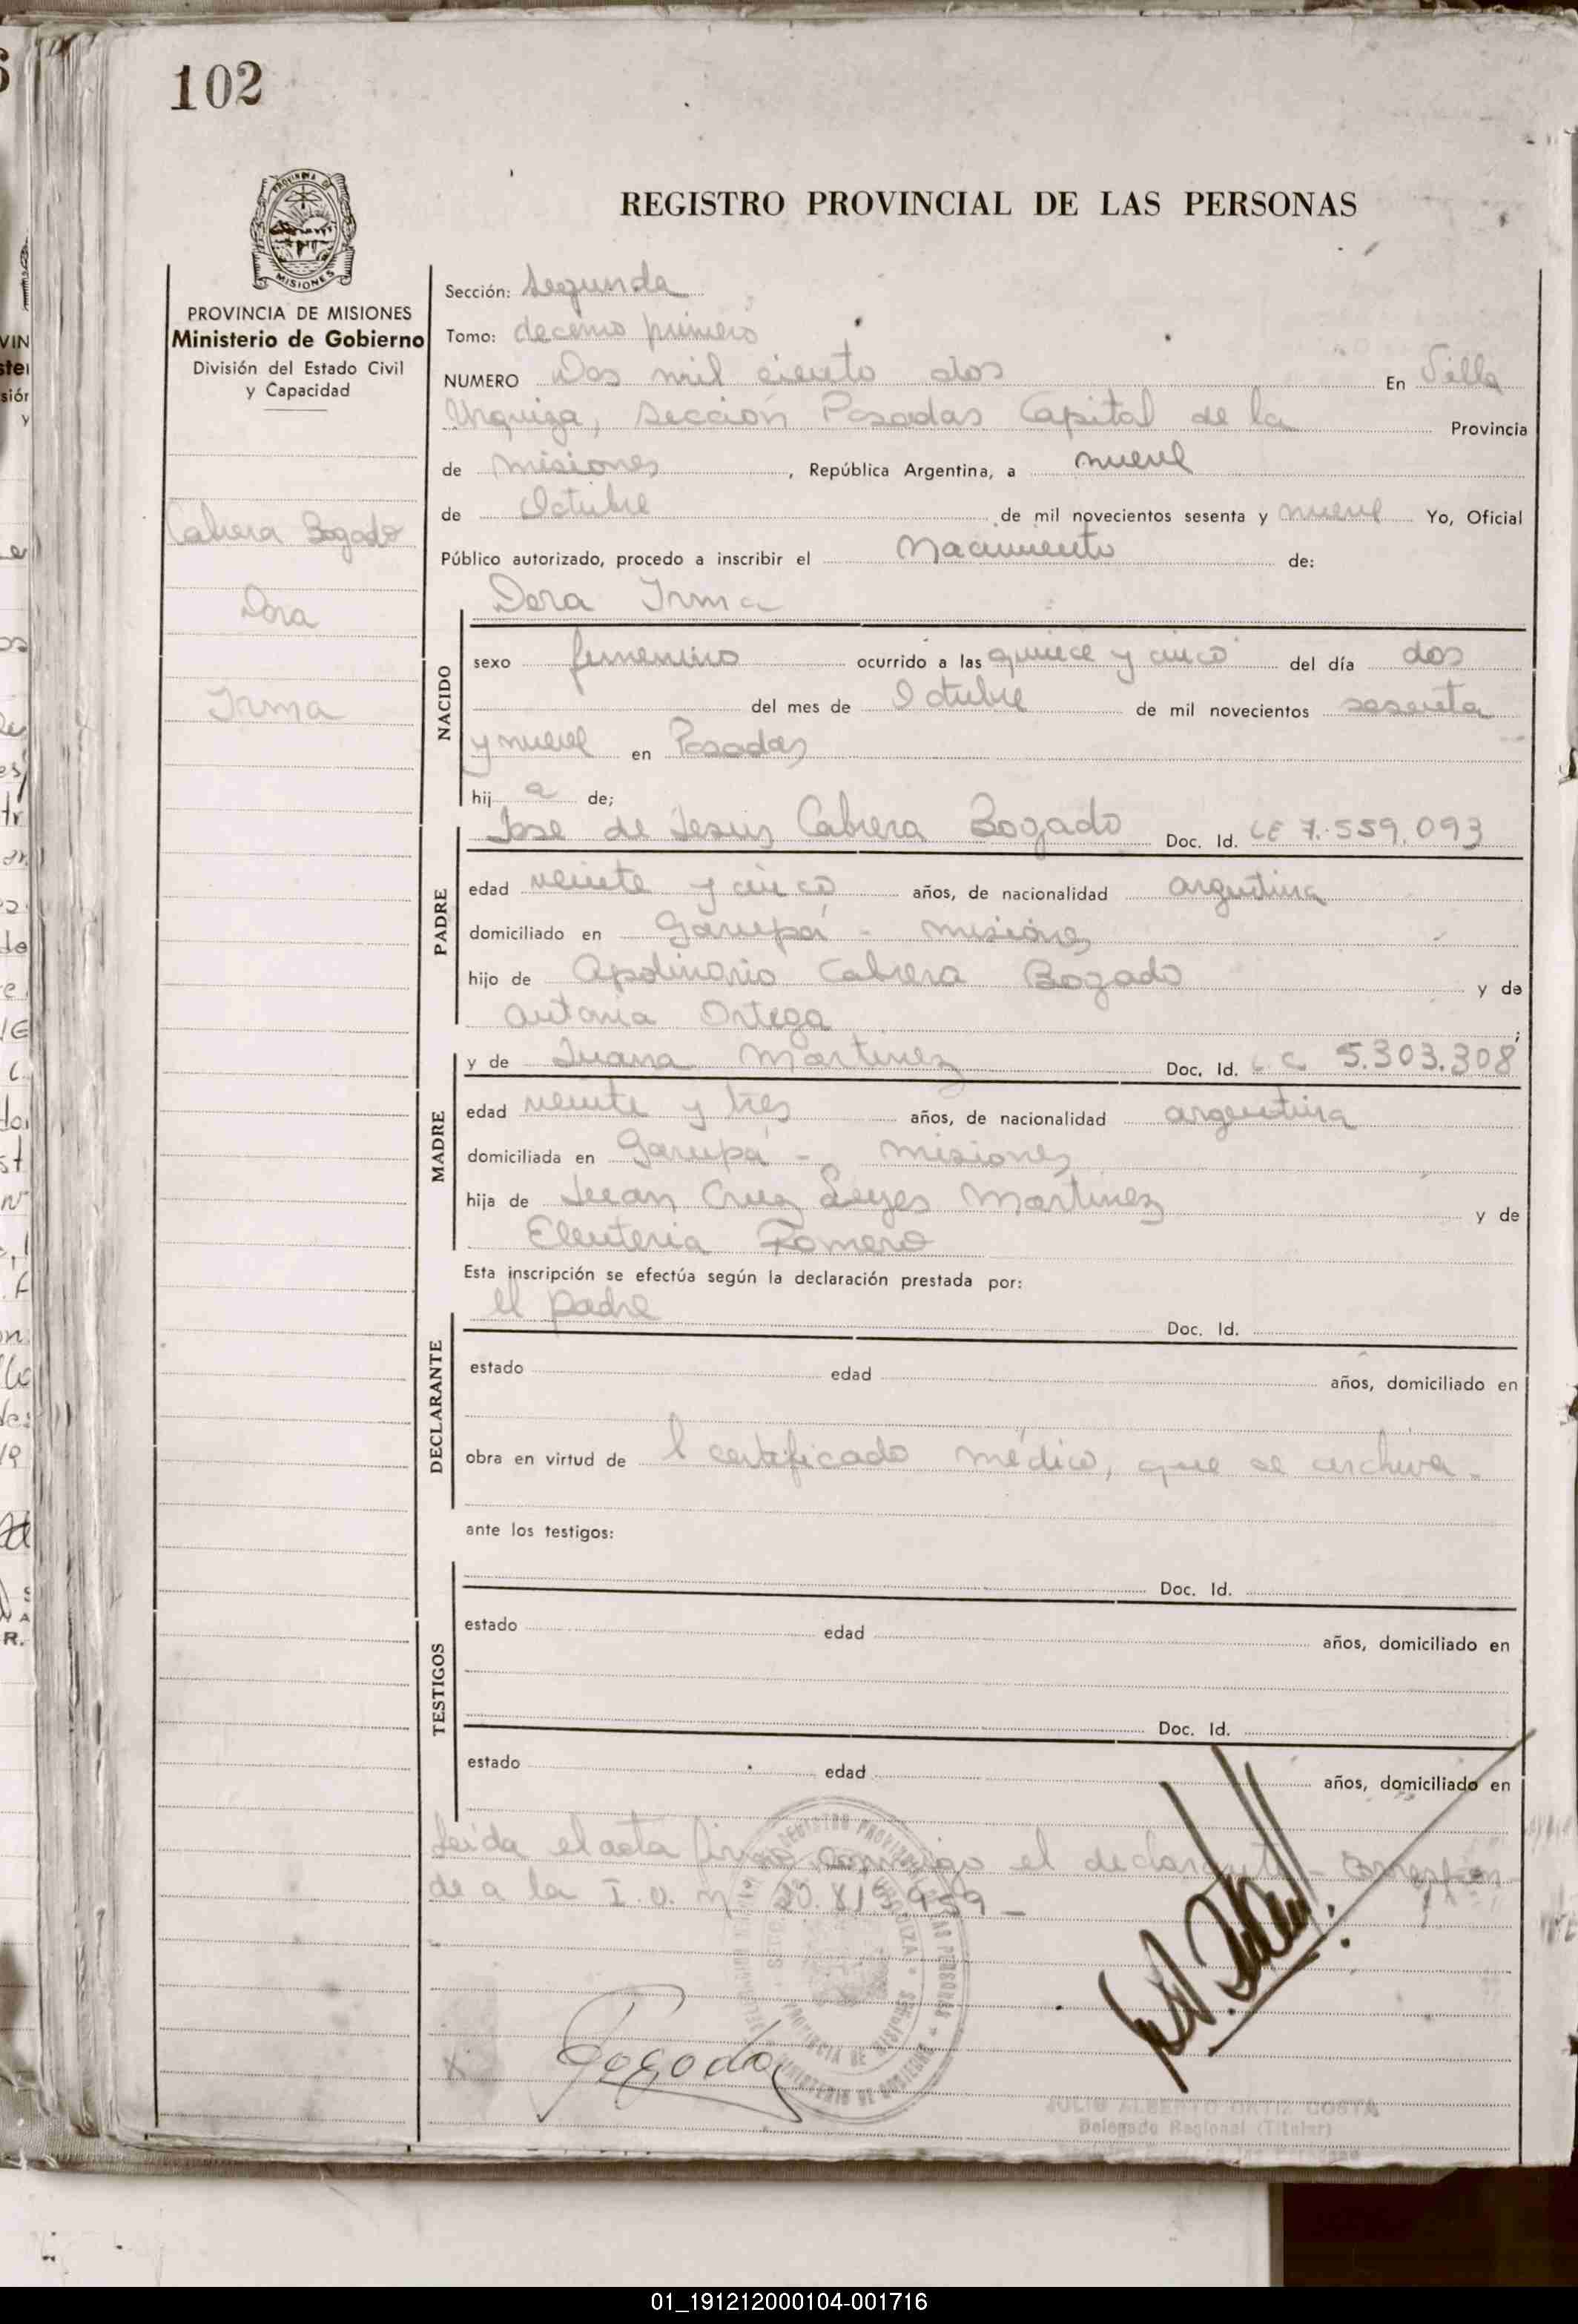 102
PROVINCIA DE MISIONES
PROVINCIA DE MISIONES
Ministerio de Gobierno
División del Estado Civil
y Capacidad
Cabrera Bogado
Dora
Irma
REGISTRO PROVINCIAL DE LAS PERSONAS
Sección: Segunda
Tomo: decimo primero
NUMERO Dos mil ciento dos En Villa
Urquiza, sección Posadas Capital de la Provincia
de misiones, República Argentina, a nueve
de Octubre de mil novecientos sesenta y nueve Yo, Oficial
Público autorizado, procedo a inscribir el Nacimiento de:
Dora Irma
NACIDO
sexo femenino ocurrido a las quince y cinco del día dos
del mes de Octubre de mil novecientos sesenta
y nueve en Posadas
hij a de;
PADRE
Jose de Jesus Cabrera Bogado Doc. Id. LE 7.559.093
edad veinte y cinco años, de nacionalidad argentina
domiciliado en Garupá - misiones
hijo de Apolinario Cabrera Bogado y de
Antonia Ortega ;
MADRE
y de Juana Martinez Doc. Id. L C. 5.303.308
edad veinte y tres años, de nacionalidad argentina
domiciliada en Garupá - misiones
hija de Juan Cruz Leyes Martinez y de
Eleuteria Romero
Esta inscripción se efectúa según la declaración prestada por:
DECLARANTE
el padre Doc. Id.
estado edad años, domiciliado en
obra en virtud de l certificado médico, que se archiva.
ante los testigos:
TESTIGOS
Doc. Id.
estado edad años, domiciliado en
Doc. Id.
estado edad años, domiciliado en
Leida el acta firma conmigo el declarante - Correspon
de a la I.U. n
JULIO ALBERTO ORTIZ COSTA
Delegado Regional (Titular)
01_191212000104-001716